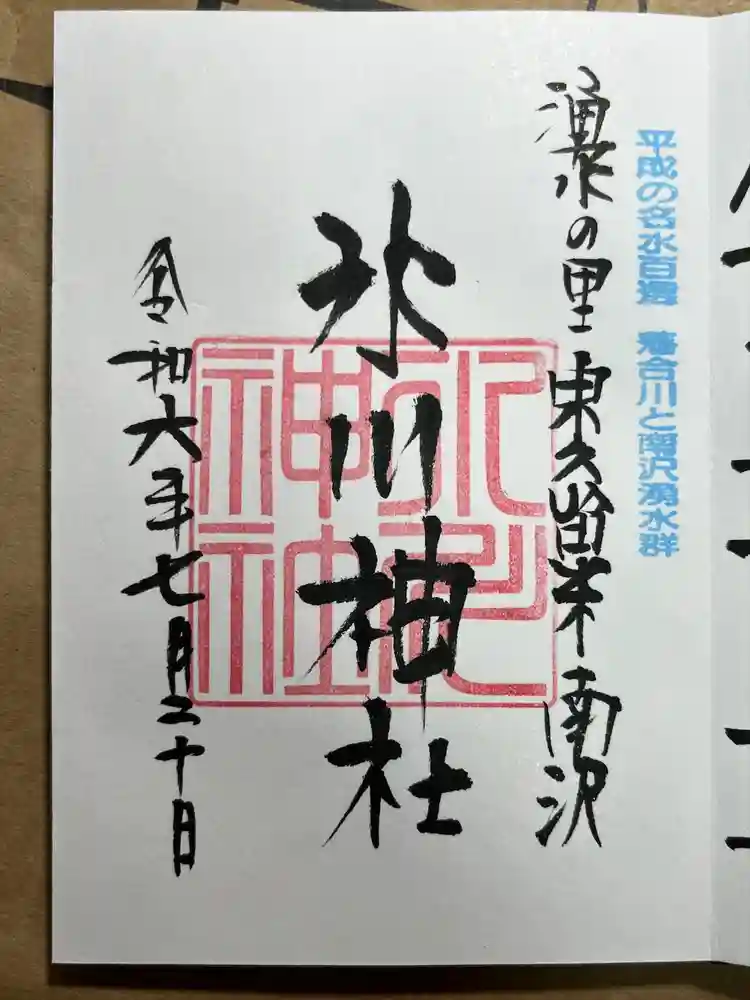 平成の名水百選 落合川と南沢湧水群
湧水の里 東久留米南沢
氷川神社
氷川神社
令和六年七月二十日